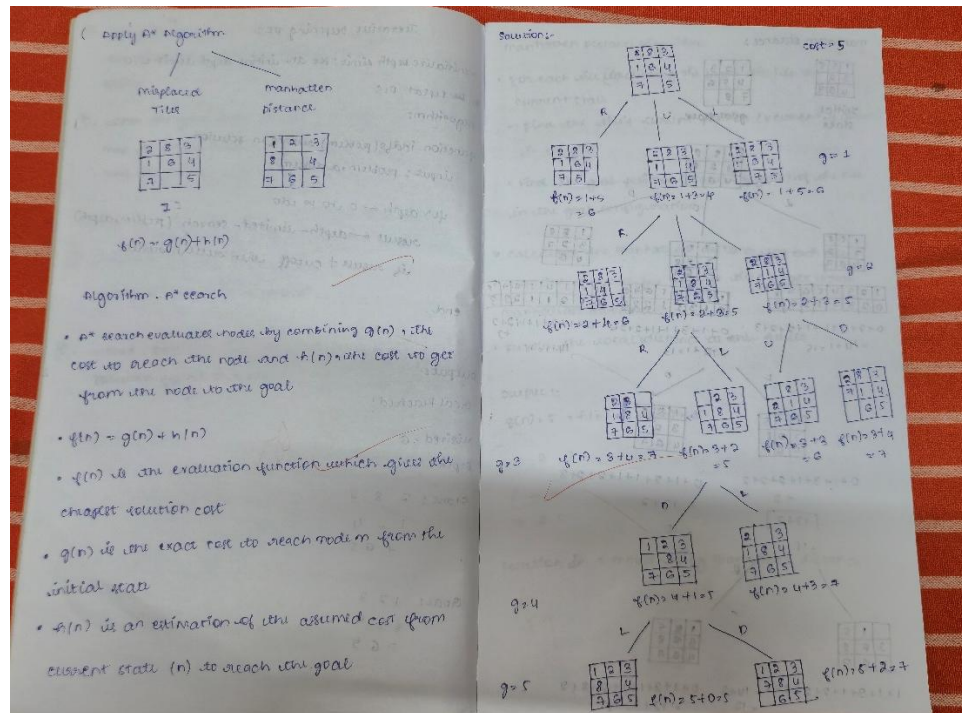 ( Apply A* Algorithm
misplaced
Tiles
manhatten
Distance
2 8 3
1 6 4
7 5
1 2 3
8 4
7 6 5
f(n) = g(n) + h(n)
Algorithm . A* search
• A* search evaluates nodes by combining g(n), the
cost to reach the node and h(n), the cost to get
from the node to the goal
• f(n) = g(n) + h(n)
• f(n) is the evaluation function which gives the
cheapest solution cost
• g(n) is the exact cost to reach node n from the
initial state
• h(n) is an estimation of the assumed cost from
current state (n) to reach the goal
Solution:-
cost = 5
2 8 3
1 6 4
7 5
R L U
2 8 3
1 6 4
7 5
2 8 3
1 4
7 6 5
2 8 3
1 6 4
7 5
g=1
f(n)=1+5
=6
f(n)=1+3=4
f(n)=1+5=6
R
2 8 3
1 4
7 6 5
2 3
1 8 4
7 6 5
2 8 3
1 4
7 6 5
g=2
f(n)=2+4=6
f(n)=2+3=5
f(n)=2+3=5
R L U D
2 3
1 8 4
7 6 5
2 3
1 8 4
7 6 5
8 3
2 1 4
7 6 5
2 8 3
7 1 4
6 5
g=3
f(n)=3+4=7
f(n)=3+2
=5
f(n)=3+3
=6
f(n)=3+4
=7
D
1 2 3
8 4
7 6 5
2 3
1 8 4
7 6 5
g=4
f(n)=4+1=5
f(n)=4+3=7
L D
1 2 3
8 4
7 6 5
1 2 3
7 8 4
6 5
f(n)=5+2=7
g=5
f(n)=5+0=5